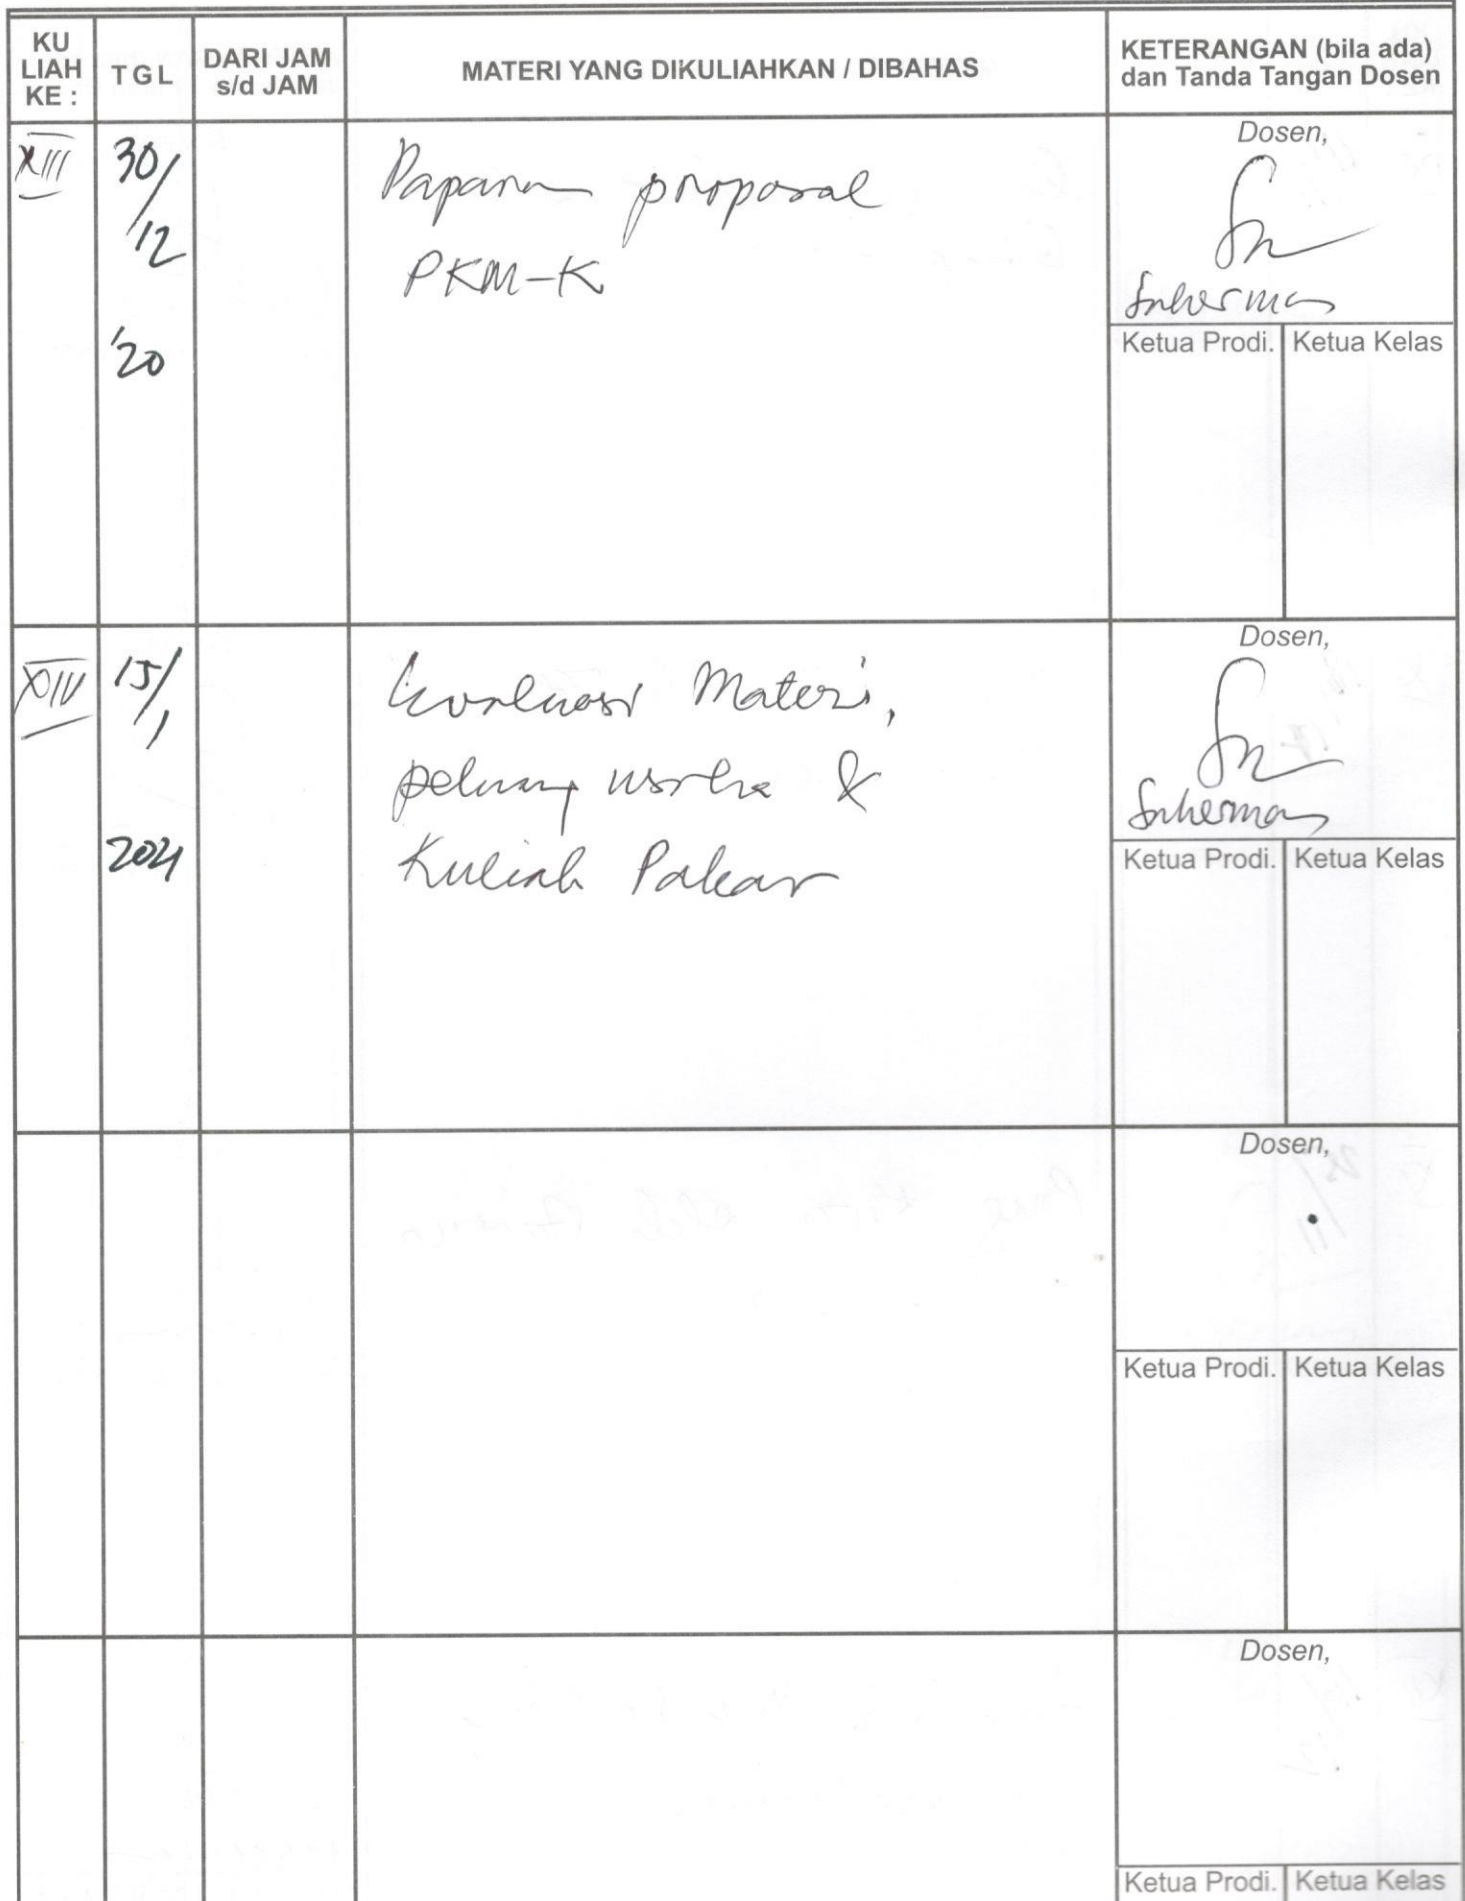 KU LIAH KE :
TGL
DARI JAM s/d JAM
MATERI YANG DIKULIAHKAN / DIBAHAS
KETERANGAN (bila ada)
dan Tanda Tangan Dosen
XIII
30/12
'20
Paparan proposal
PKM-K
Dosen,
Suherman
Ketua Prodi.
Ketua Kelas
XIV
15/1
2021
Evaluasi Materi,
peluang usaha &
Kuliah Pakar
Dosen,
Suherman
Ketua Prodi.
Ketua Kelas
Dosen,
Ketua Prodi.
Ketua Kelas
Dosen,
Ketua Prodi.
Ketua Kelas